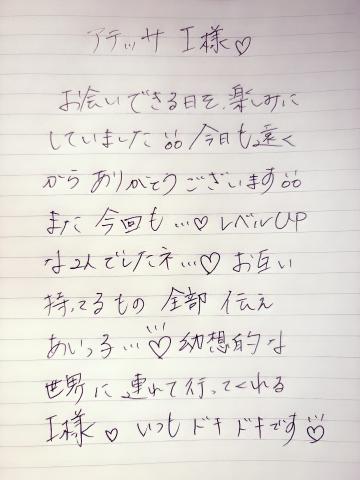 アテッサ I様♡
お会いできる日を、楽しみに
していました
今日も遠く
からありがとうございます
また今回も…♡レベルUP
な2人でしたネ…♡お互い
持ってるもの全部伝え
あいっ子…♡幼想的な
世界に連れて行ってくれる
I様♡いつもドキドキです♡